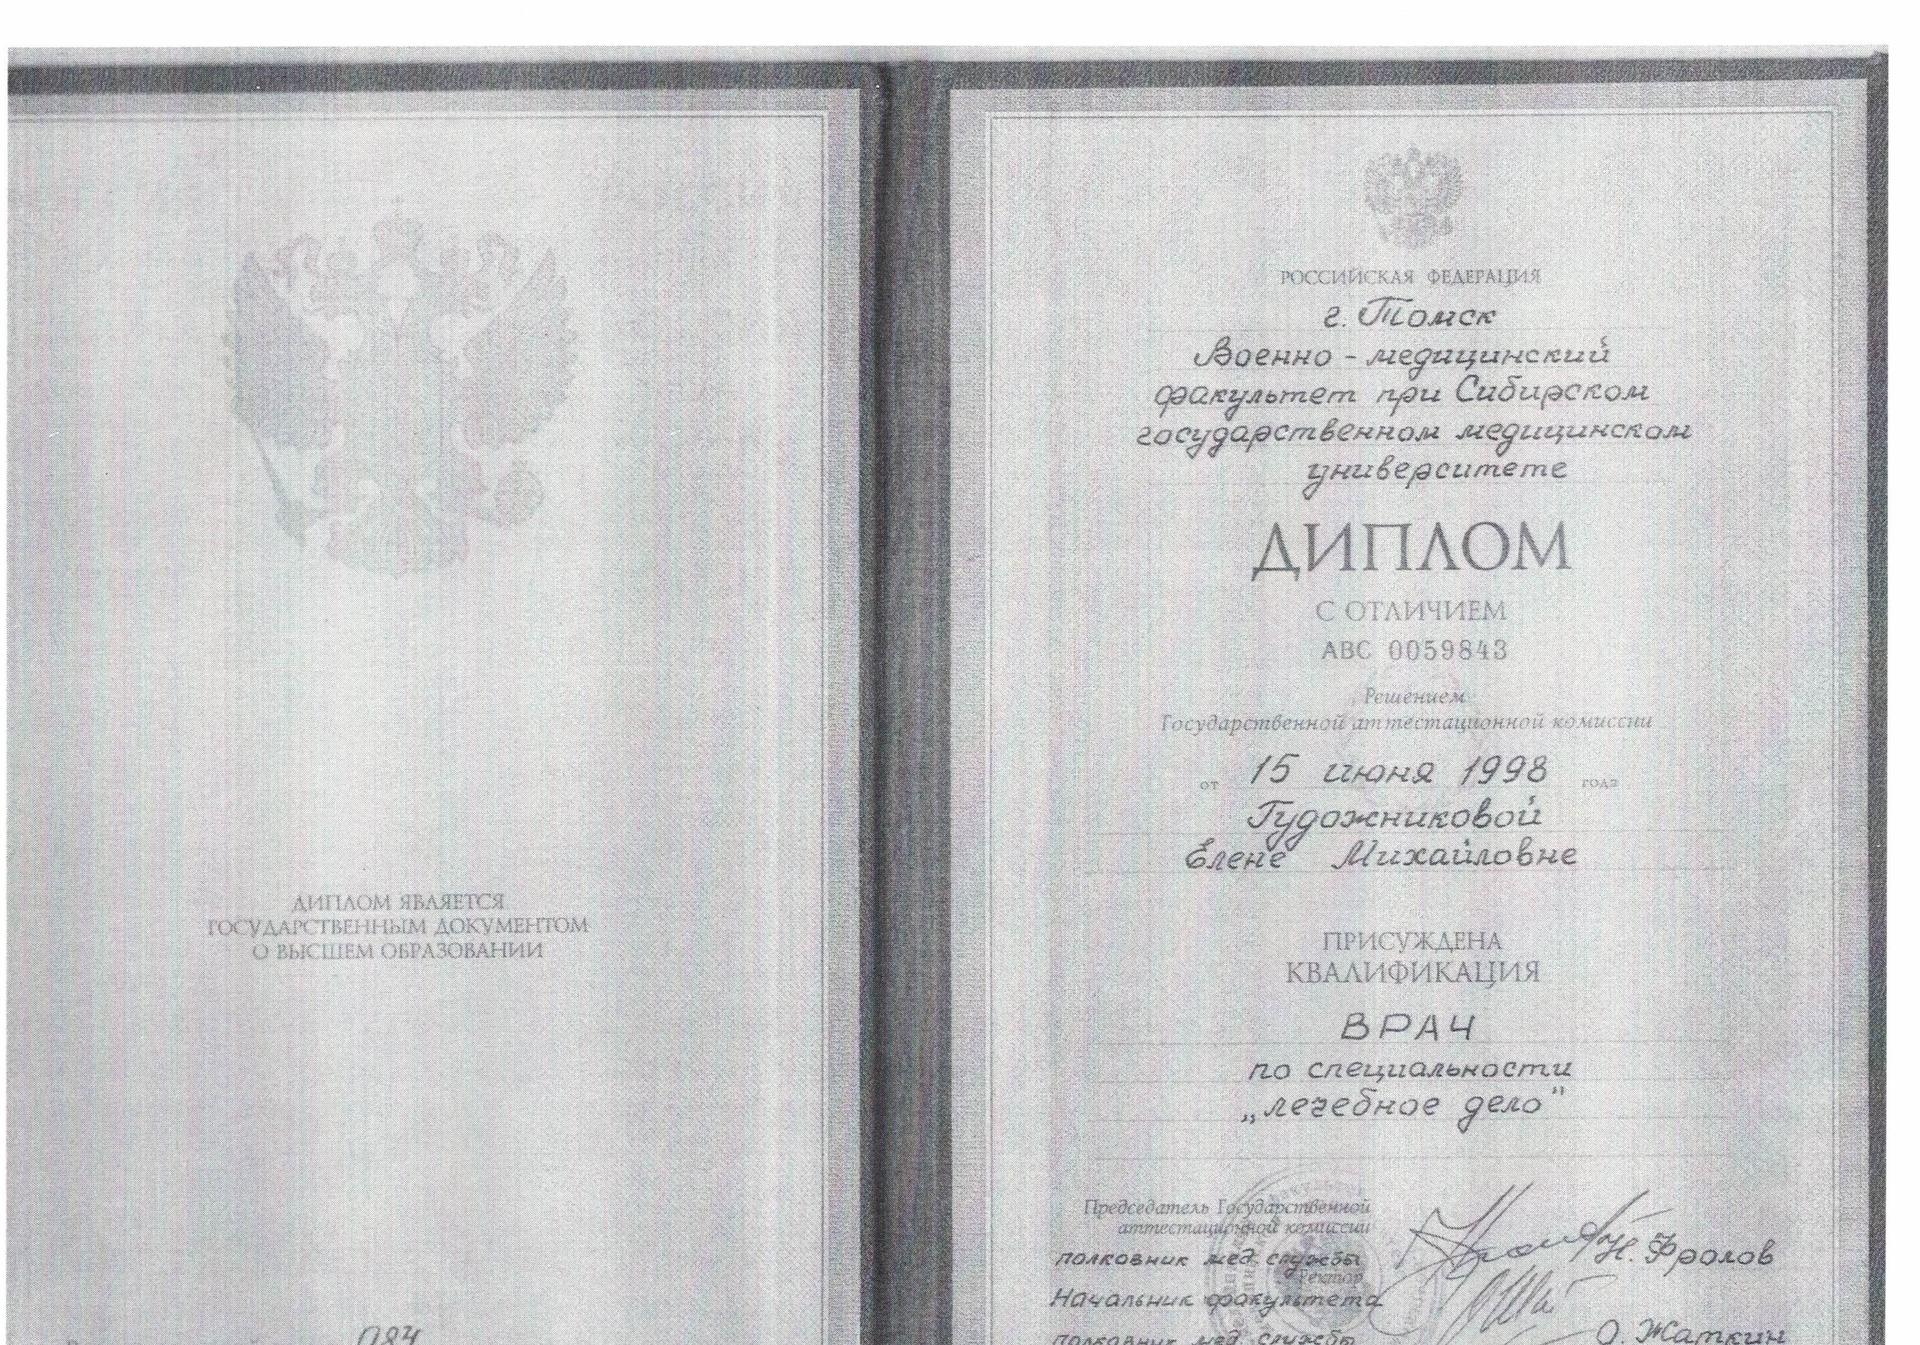 ДИПЛОМ ЯВЛЯЕТСЯ
ГОСУДАРСТВЕННЫМ ДОКУМЕНТОМ
О ВЫСШЕМ ОБРАЗОВАНИИ
084
РОССИЙСКАЯ ФЕДЕРАЦИЯ
г. Томск
Военно-медицинский
факультет при Сибирском
государственном медицинском
университете
ДИПЛОМ
С ОТЛИЧИЕМ
АВС 0059843
Решением
Государственной аттестационной комиссии
от 15 июня 1998 года
Гудожниковой
Елене Михайловне
ПРИСУЖДЕНА
КВАЛИФИКАЦИЯ
ВРАЧ
по специальности
„лечебное дело"
Председатель Государственной
аттестационной комиссии
полковник мед. службы Н. Фролов
Ректор
Начальник факультета
полковник мед. службы О. Жаткин